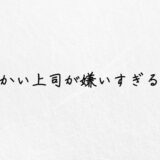 かい上司が嫌いすぎる